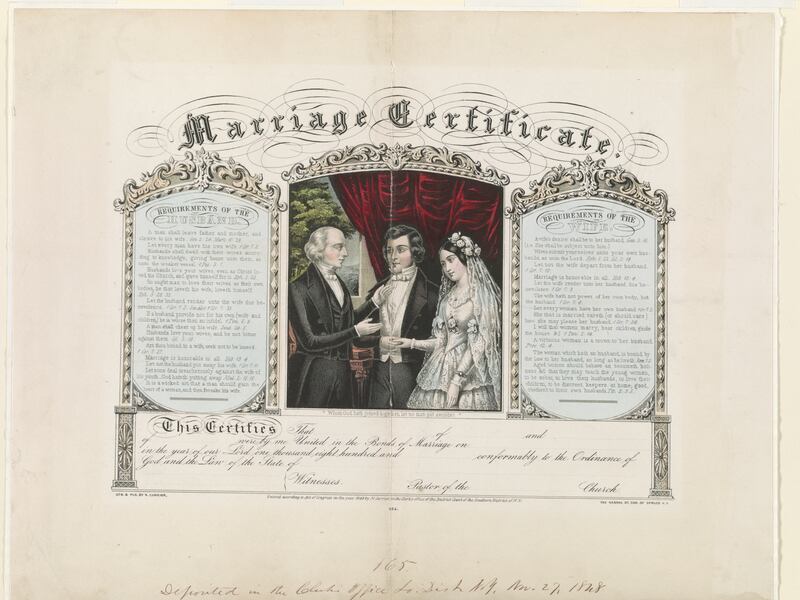 Marriage Certificate.
REQUIREMENTS OF THE
HUSBAND.
A man shall leave father and mother, and
cleave to his wife.
Let every man have his own wife.
Husbands shall dwell with their wives accor-
ding to knowledge, giving honor unto them, as
unto the weaker vessel.
Husbands love your wives, even as Christ lo-
ved the Church, and gave himself for it.
So ought men to love their wives, as their own
bodies, he that loveth his wife, loveth himself.
Let the husband render unto the wife due be-
nevolence.
If a husband provide not for his own [wife and
children] he is worse than an infidel.
A man shall cheer up his wife.
Husbands love your wives, and be not bitter
against them.
Art thou bound to a wife, seek not to be loosed.
Marriage is honorable in all.
Let not the husband put away his wife.
Let none deal treacherously against the wife of
his youth, God hateth putting away.
It is a wicked act that a man should gain the
heart of a woman, and then forsake his wife.
REQUIREMENTS OF THE
WIFE.
A wife's desire shall be to her husband.
[i.e. She shall be subject unto him.]
Wives submit yourselves unto your own hus-
bands, as unto the Lord.
Let not the wife depart from her husband.
Marriage is honorable in all.
Let the wife render unto her husband due be-
nevolence.
The wife hath not power of her own body, but
the husband.
Let every woman have her own husband.
She that is married careth [or should care]
how she may please her husband.
I will that women marry, bear children, guide
the house.
A virtuous woman is a crown to her husband.
The woman which hath an husband, is bound by
the law to her husband, so long as he liveth.
Aged women should behave as becometh holi-
ness &c that they may teach the young women
to be sober, to love their husbands, to love their
children, to be discreet, keepers at home, good,
obedient to their own husbands.
"Whom God hath joined together, let no man put asunder."
This Certifies That of and
of were by me United in the Bonds of Marriage on
in the year of our Lord one thousand eight hundred and conformably to the Ordinance of
God and the Law of the State of
Witnesses. Pastor of the Church.
LITH. & PUB. BY N. CURRIER,
Entered according to Act of Congress in the year 1848 by N. Currier, in the Clerk's office of the District Court of the Southern District of N.Y.
152 NASSAU ST. COR. OF SPRUCE N.Y.
165.
Deposited in the Clerks Office So. Dist. N.Y. Nov. 27, 1848